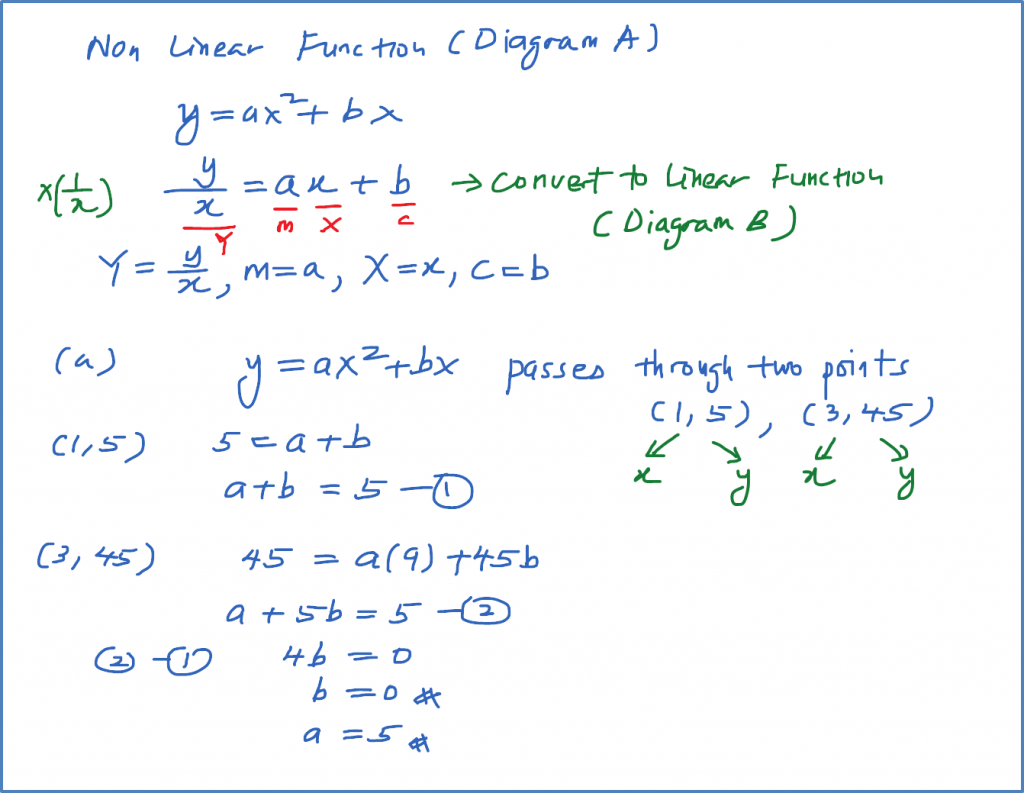 Non Linear Function (Diagram A)
y = ax² + bx
x(1/x) y/x = ax + b → convert to Linear Function
Y m X c (Diagram B)
Y = y/x, m = a, X = x, c = b
(a) y = ax² + bx passes through two points
(1, 5), (3, 45)
x y x y
(1, 5) 5 = a + b
a + b = 5 — ①
(3, 45) 45 = a(9) + 45b
a + 5b = 5 — ②
② - ① 4b = 0
b = 0 #
a = 5 #